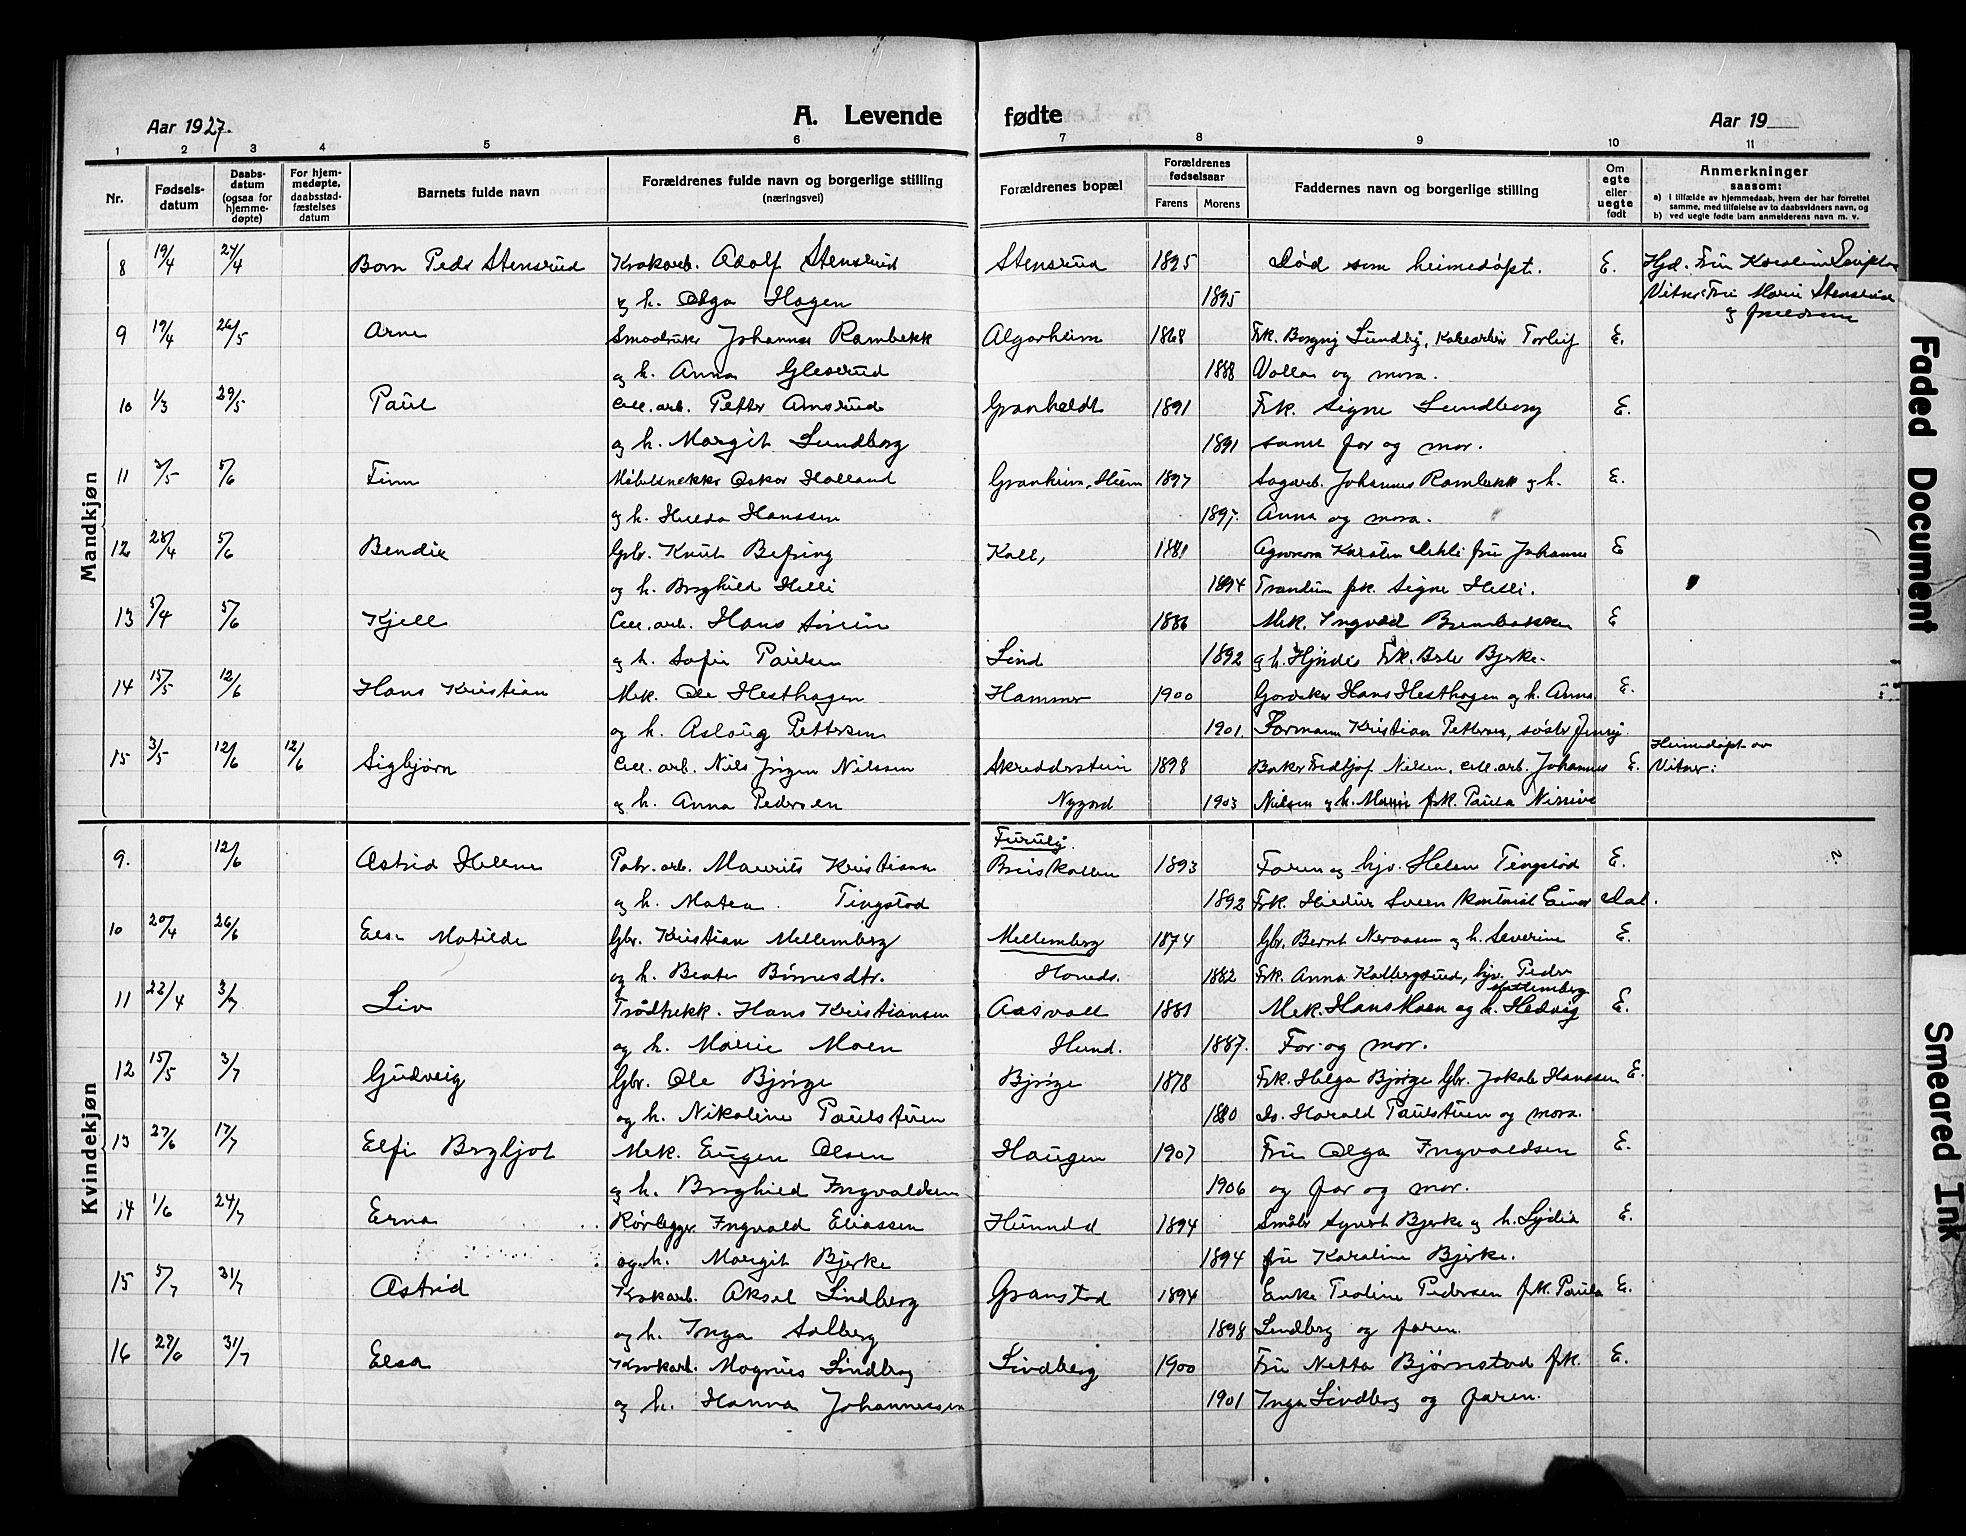 A. Levende fødte
Aar 1927.
Aar 19
1 2 3 4 5 6 7 8 9 10 11
Nr.
Fødsels-datum
Daabs-datum (ogsaa for hjemme-døpte)
For hjem-medøpte, daabsstad-fæstelses datum
Barnets fulde navn
Forældrenes fulde navn og borgerlige stilling (næringsvei)
Forældrenes bopæl
Forældrenes fødselsaar
Farens Morens
Faddernes navn og borgerlige stilling
Om egte eller uegte født
Anmerkninger saasom:
a) i tilfælde av hjemmedaab, hvem der har forrettet samme, med tilføielse av to daabsvidners navn, og
b) ved uegte fødte barn anmelderens navn m. v.
Mandkjøn
8 19/4 24/4 Peder Stensrud Krokarb. Adolf Stensrud Stensrud 1895 Død som heimedøpt. E. Hjd. Fru
og h. Olga Hagen 1895 Vitner: Fru Marie Stensrud
og
9 19/4 26/5 Arne Johannes Rambekk Algarheim 1868 Frk. Borgny Lundby, Torleif E.
og h. Anna Gleserud 1888 Volla og mora.
10 1/3 29/5 Paul Cell. arb. Petter Amsrud Granheldt 1891 Frk. Signe Lundberg E.
og h. Margit Lundberg 1891 samt far og mor.
11 2/5 5/6 Finn Møbelsnekker Oskar Holland Granheim, 1897 Sagarb. Johannes Rambekk og h. E.
og h. Hilda Hanssen 1897. Anna og mora.
12 28/4 5/6 Bendix Gbr. Knut Befring Kall, 1881 Karsten fru Johanne E
og h. Borghild Helli 1894 Trandum frk. Signe Helli.
13 5/4 5/6 Kjell Cell. arb. Hans 1886 Mek. Ingvald Brembakken E
og h. Sofie Paulsen Lund 1892 og h. Frk. Bjerke.
14 15/5 12/6 Hans Kristian Mek. Ole Hesthagen Hammer 1900 Hans Hesthagen og h. Anna E.
og h. Aslaug Pettersen 1901. Formann Kristian Pettersen, søster Jenny.
15 3/5 12/6 12/6 Sigbjørn Cell. arb. Nils Jørgen Nilssen Skredderstein 1898 Baker Fredtjof Nielsen, cell. arb. Johannes E. Heimedøpt av
og h. Anna Pedersen Nygard 1903 Nielsen og h. Marie frk. Paula Vitner:
Kvindekjøn
9. 12/6 Astrid Helene Fabr. arb. Maurits Kristiansen Furuly. Briskallen 1893 Faren og hjv. Helen Tingstad E. ?
og h. Matea Tingstad 1892 Frk. Sveen kontorist Einar Dal.
10 20/4 26/6 Else Matilde Gbr. Kristian Mellemberg Mellemberg 1874 Gbr. Bernt og h. Severine E.
og h. Beate 1882 Frk. Anna hjv. Peder
Mellemberg
11 22/4 3/7 Liv Trådtrekk. Hans Kristiansen Aasvoll 1881 Mek. Hans Moen og h. Hedvig E.
og h. Marie Moen Hund. 1887. Far og mor.
12 15/5 3/7 Gudveig Gbr. Ole Bjørge Bjørge 1878 Frk. Helga Bjørge Gbr. Jakob Hanssen E.
og h. Nikoline Paulstuen 1880 Harald Paulstuen og mora.
13 27/6 17/7 Elfi Bergljot Mek. Eugen Olsen Haugen 1907 Fru Olga Ingvaldsen E.
og h. Borghild Ingvaldsen 1906 og far og mor.
14 1/6 24/7 Erna Rørlegger Ingvald Eliassen Hunndal 1894 Småbr Syvert Bjerke og h. Lydia E.
og h. Margit Bjerke 1894 fru Karoline Bjerke.
15 5/7 31/7 Astrid Krokarb. Aksel Lindberg Granstad 1894 Enke Teoline Pedersen frk. Paula E.
og h. Inga Solberg 1898 Lindberg og faren.
16 27/6 31/7 Elsa Krokarb. Magnus Lindberg Lindberg 1900 Fru Netta Bjørnstad frk. E.
og h. Hanna Johannessen 1901 Inga Lindberg og faren.
Faded Document
Smeared Ink